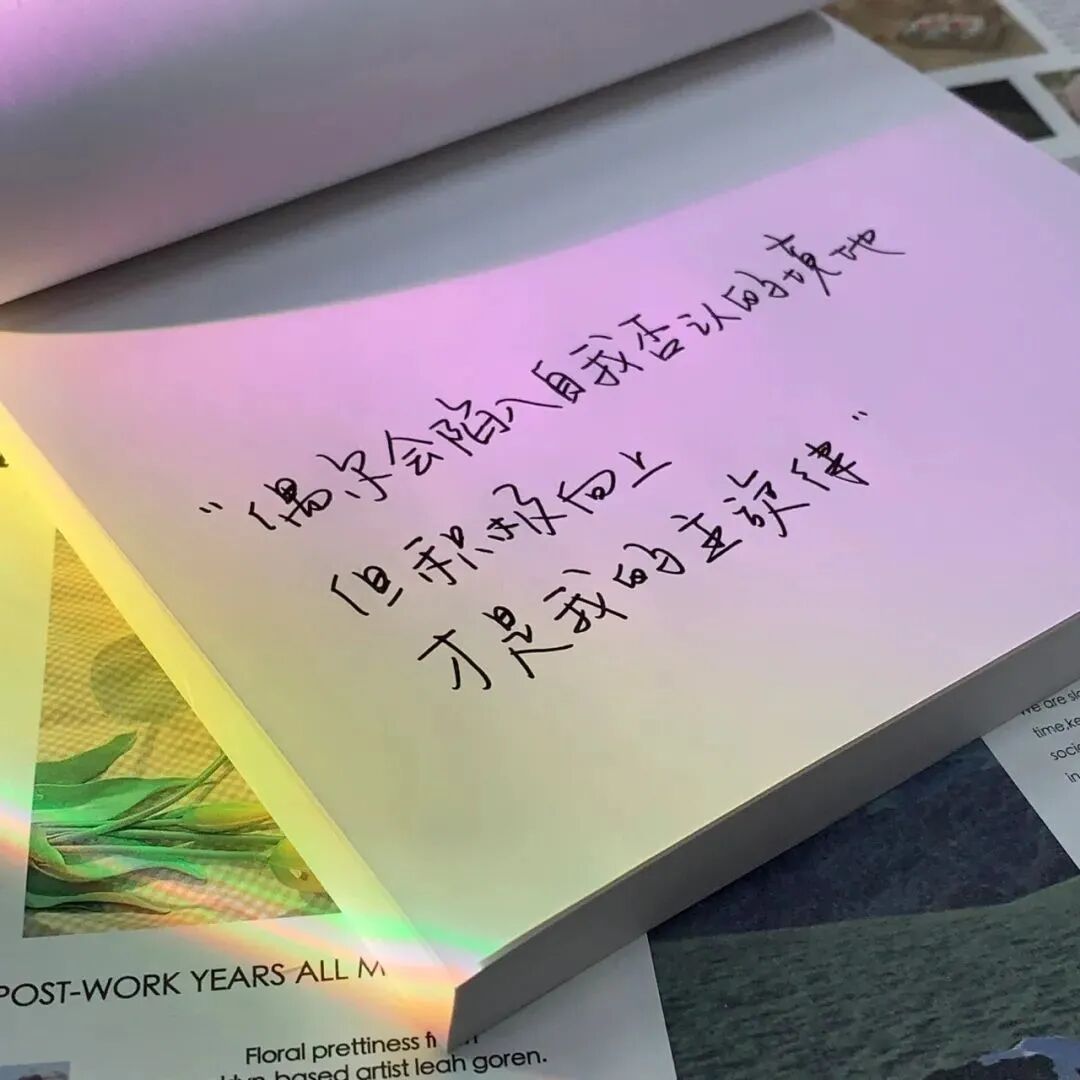 “偶尔会陷入自我否认的境地
但积极向上
才是我的主旋律”
We are slo
time,ke
socie
in
POST-WORK YEARS ALL M
Floral prettiness f
based artist leah goren.